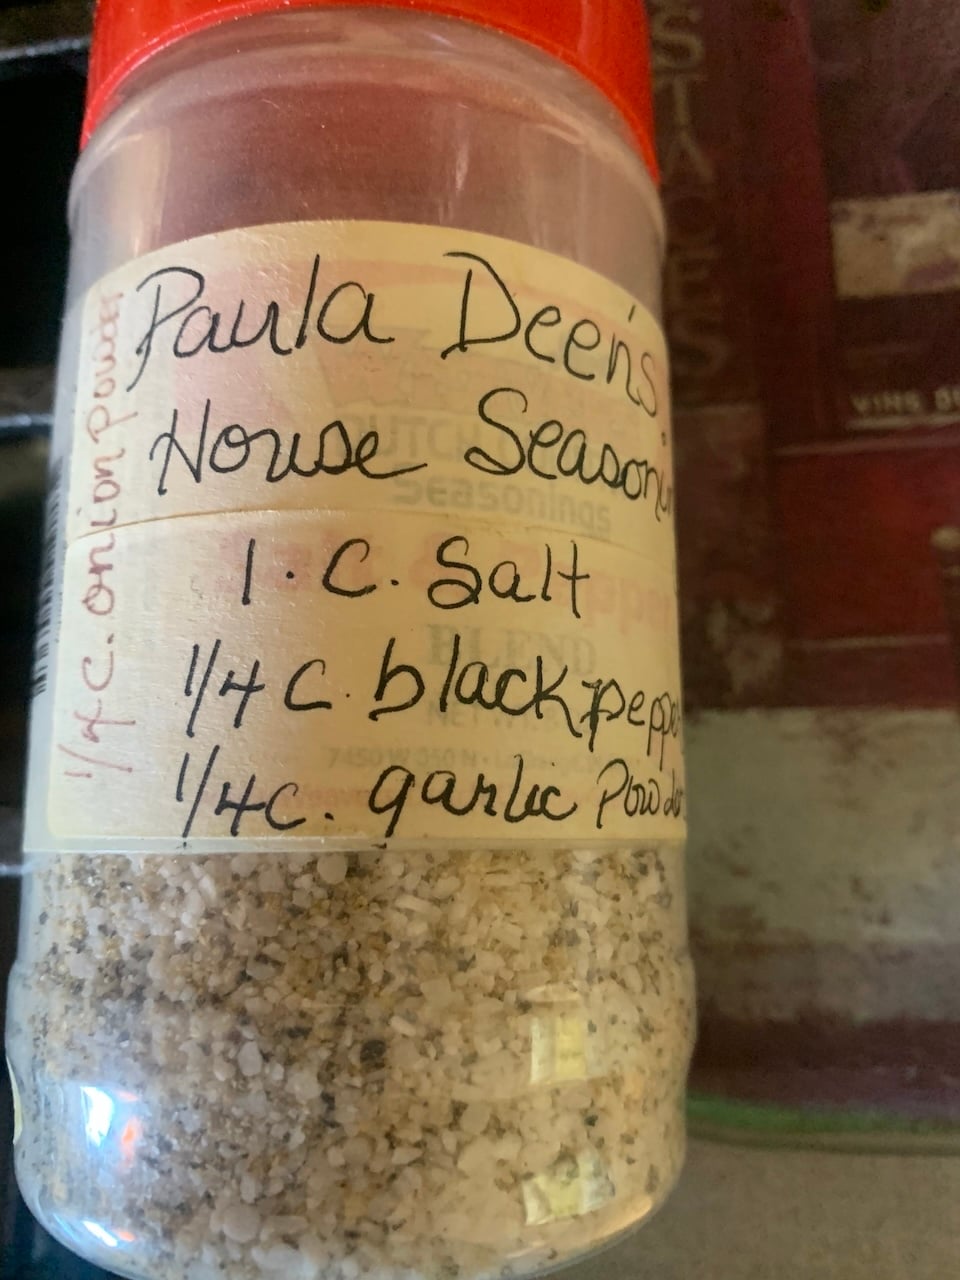 Paula Deen's
House Seasonin
1. C. Salt
1/4 C. black peppe
1/4 C. garlic Powde
1/4 C. onion powder
UTCH
Seasonings
BLEND
STACES
VINS